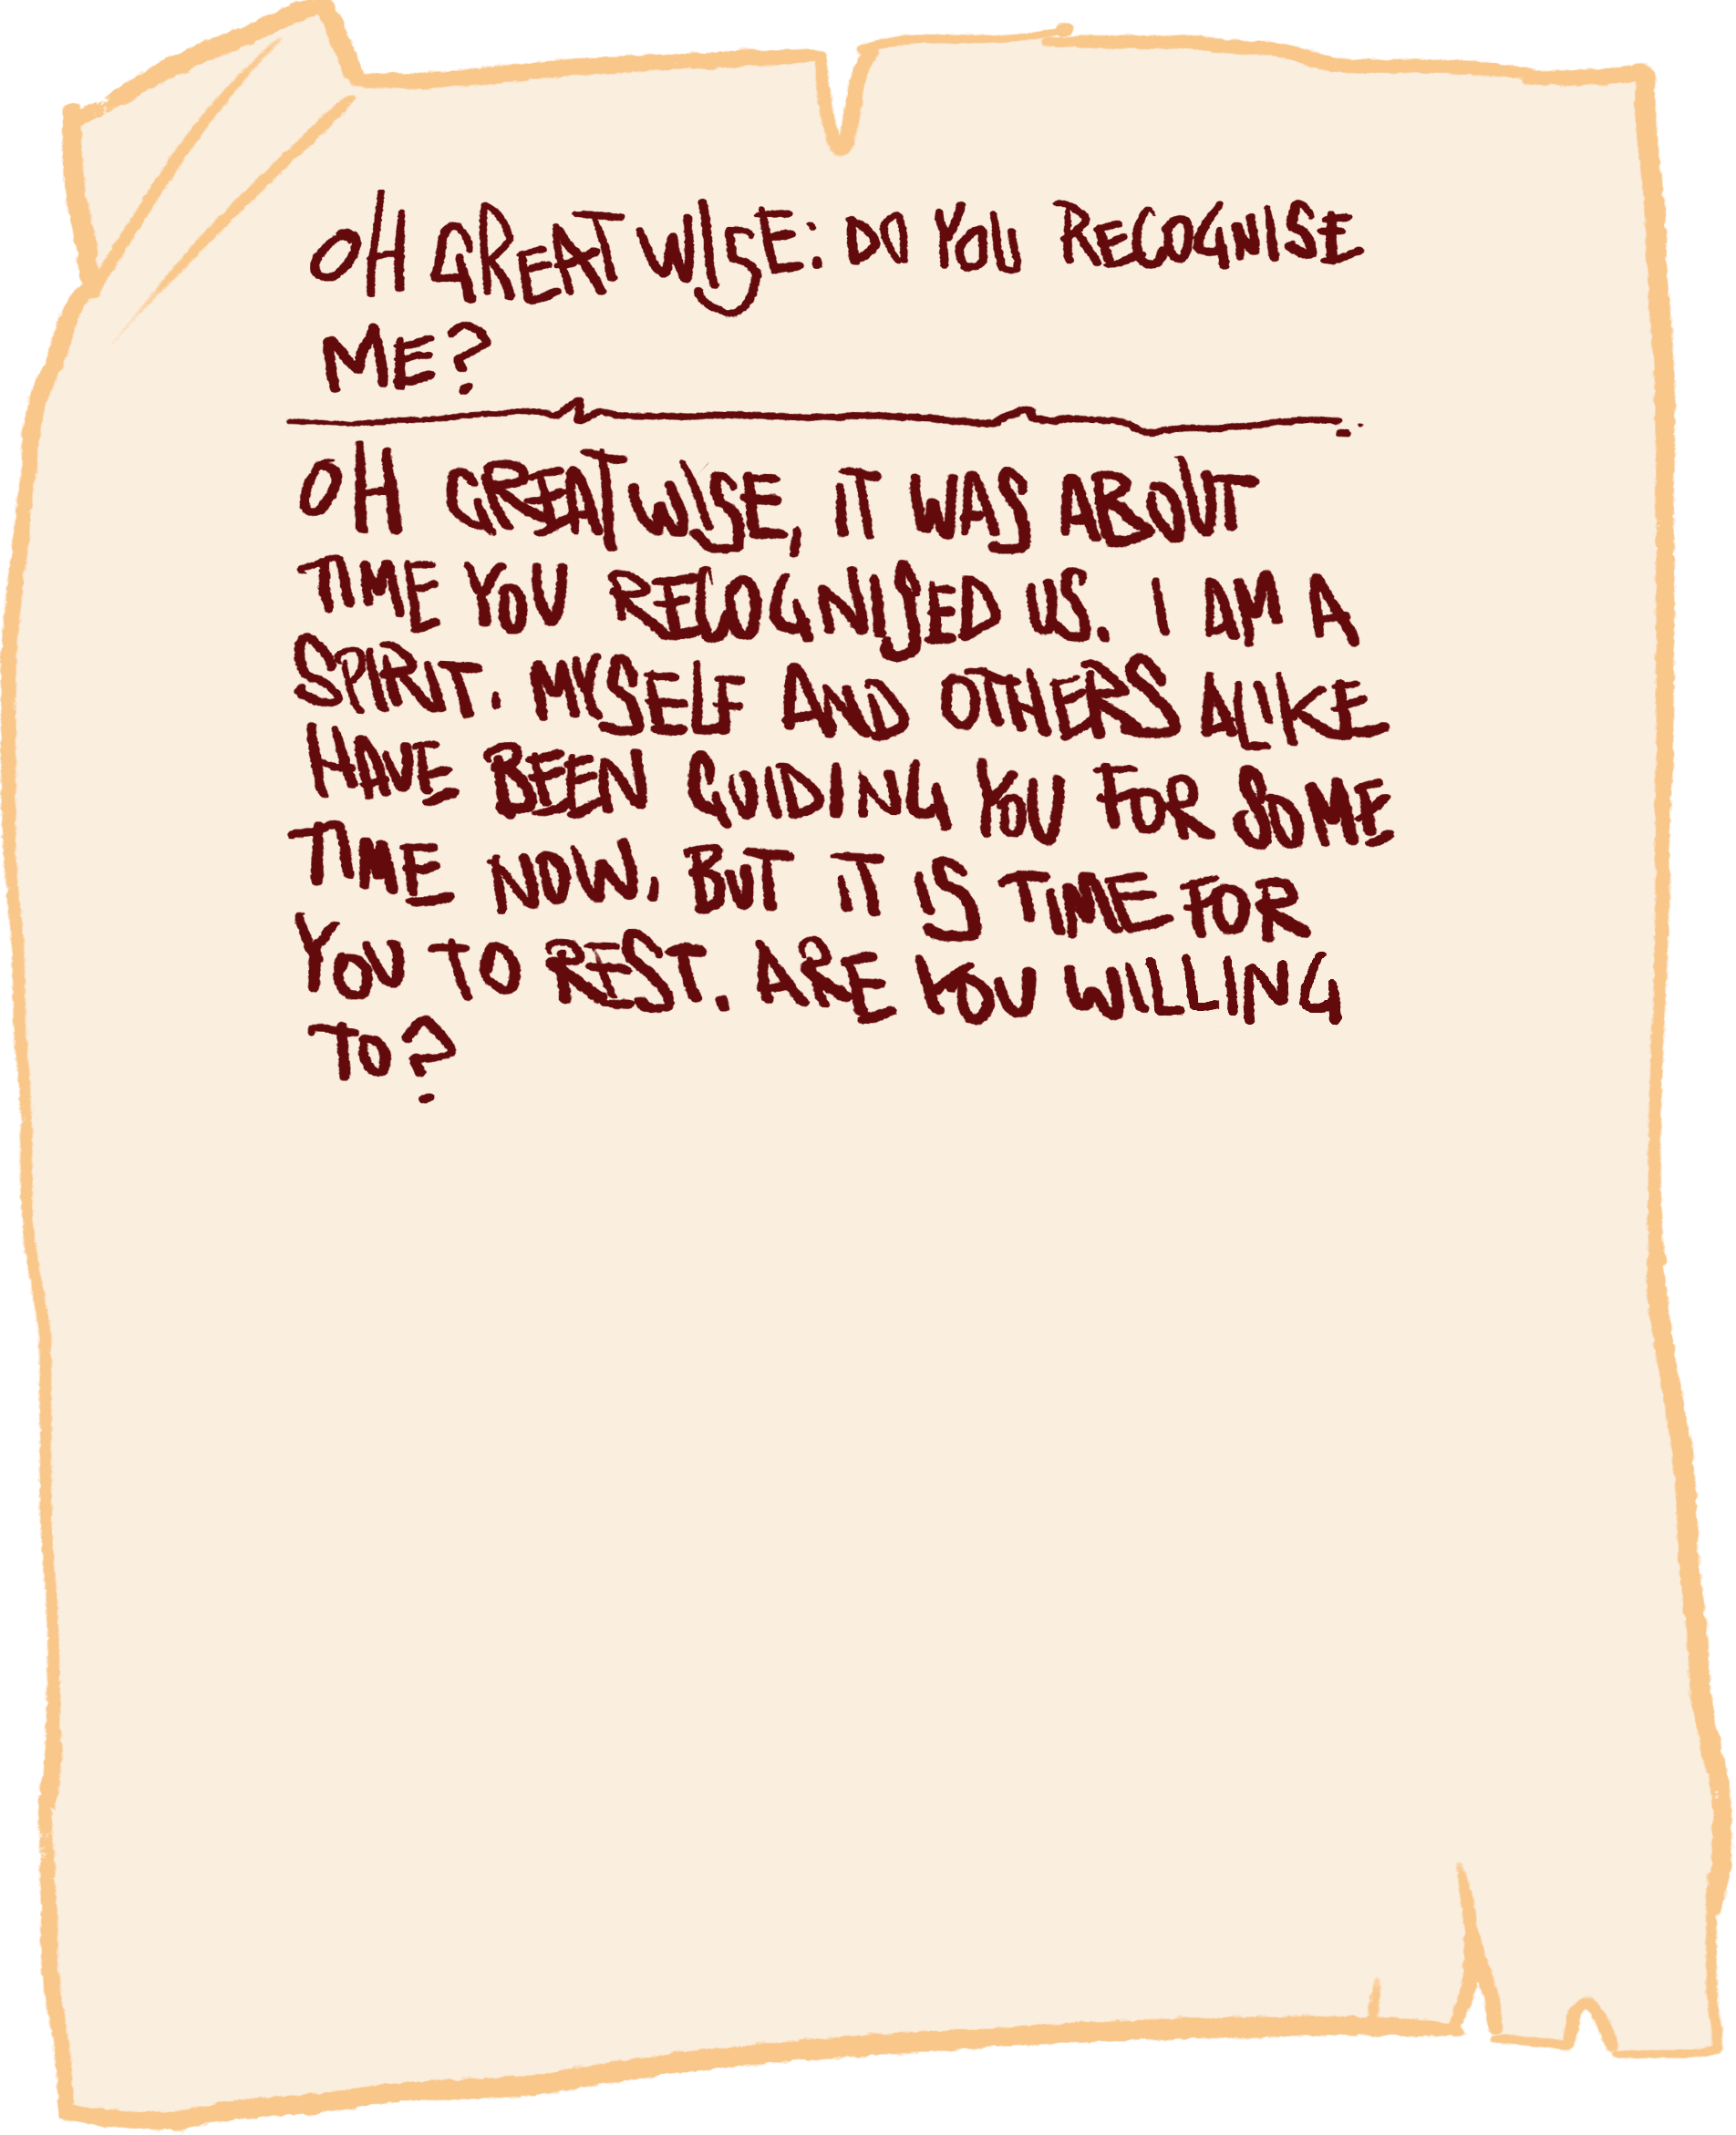 OH GREATWISE: DO YOU RECOGNISE
ME?
OH GREATWISE, IT WAS ABOUT
TIME YOU RECOGNISED US. I AM A
SPIRIT. MYSELF AND OTHERS ALIKE
HAVE BEEN GUIDING YOU FOR SOME
TIME NOW. BUT IT IS TIME FOR
YOU TO REST. ARE YOU WILLING
TO?